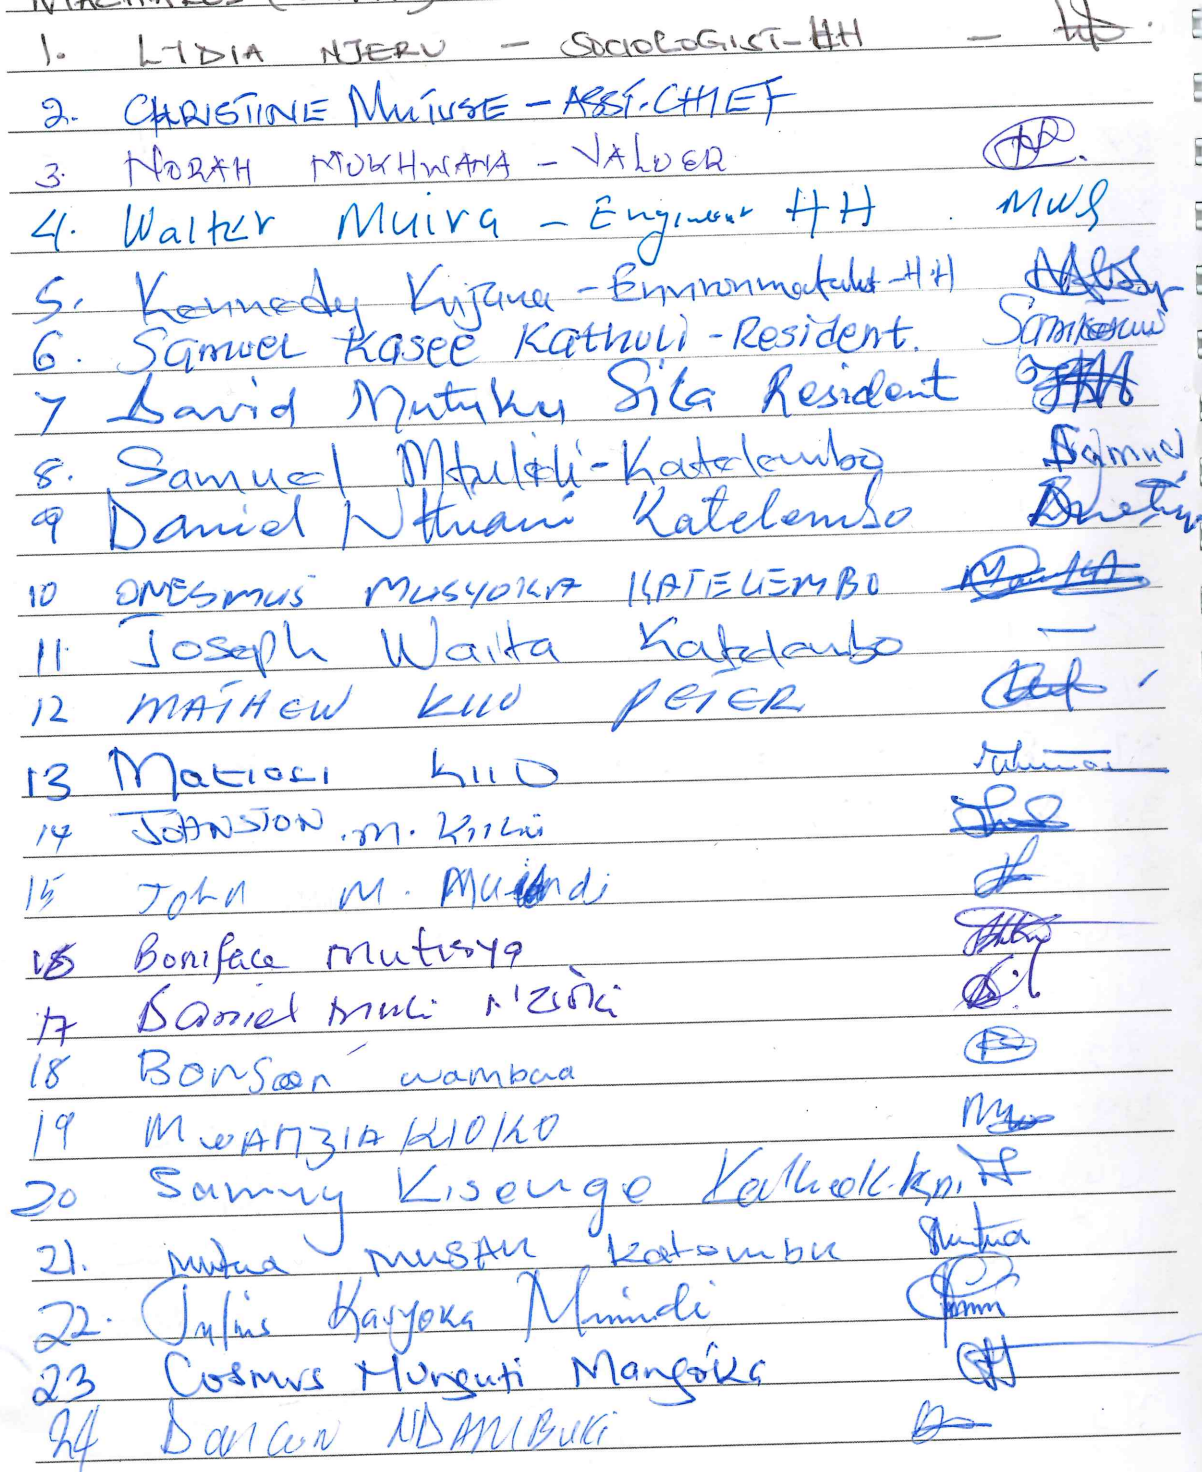 1. LYDIA NJERU - SOCIOLOGIST-HH -
2. CHRISTINE MUTUSE - ASST. CHIEF
3. NORAH MUKHWANA - VALUER
4. Walter Muira - Engineer HH . MWS
5. Kennedy Kijana - Environmentalist - HH
6. Samuel Kasee Kathuli - Resident.
7 David Mutuku Sila Resident
8. Samuel - Katelembo Samuel
9 Daniel Katelembo
10 ONESMUS MUSYOKA KATELEMBO
11. Joseph Waita Katelembo —
12 MATHEW KIIO PETER
13 KIIO
14 JOHNSTON . M.
15 John M.
16 Boniface Mutisya
17 Daniel Muli Nzioki
18 Bonson wambua
19 MWANZIA KIOKO
20 Sammy Kisenge
21. Mutua MUSAU Katombu Mutua
22. Julius Kasyoka Muindi
23 Cosmus Munguti Mangoka
24 DANCUN NDAMBUKI